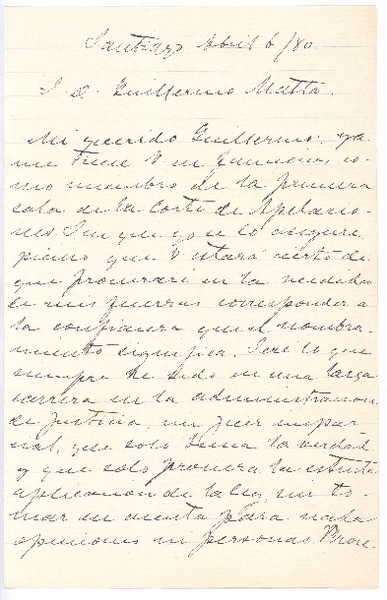 Santiago Abril 6/80
S. D. Guillermo Matta.
Mi querido Guillermo: ya
me tiene V en funciones, co-
mo miembro de la primera
sala de la Corte de Apelacio-
nes. Sin que yo se lo asegure
pienso que V estará cierto de
que procuraré en la medida
de mis fuerzas corresponder a
la confianza que el nombra-
miento significa. Seré lo que
siempre he sido en una larga
carrera en la administracion
de justicia, un juez impar-
cial, que solo busca la verdad
y que solo procura la estricta
aplicacion de la ley, sin to-
mar en cuenta para nada
opiniones ni personas.